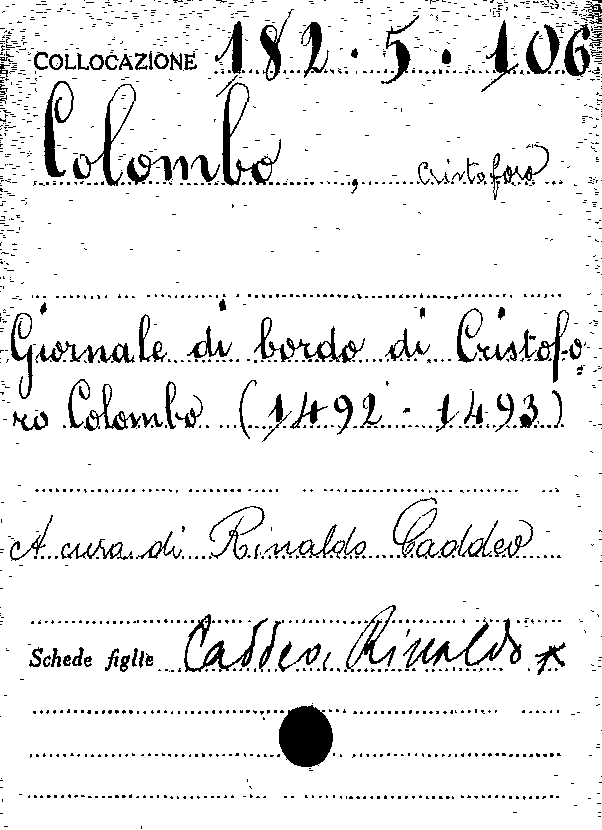 COLLOCAZIONE 182·5·106
Colombo, Cristoforo
Giornale di bordo di Cristofo-
ro Colombo (1492-1493)
A cura di Rinaldo Caddeo
Schede figlie Caddeo, Rinaldo *